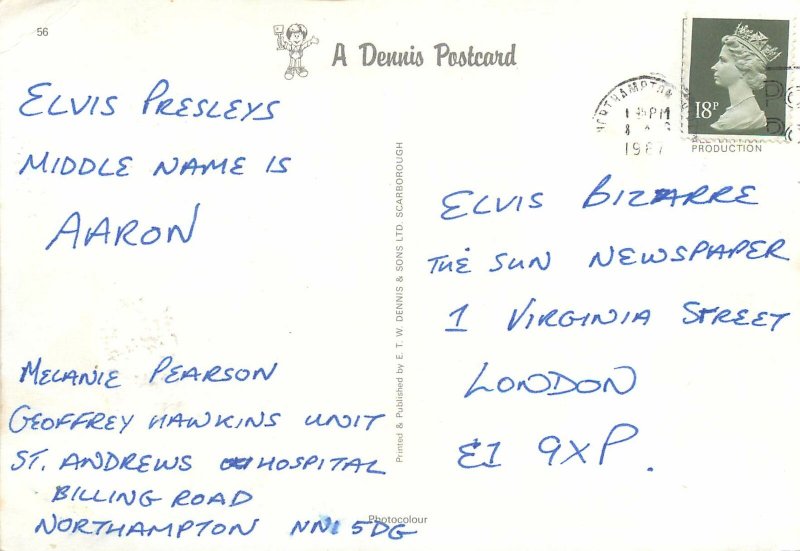 56
A Dennis Postcard
ELVIS PRESLEYS
MIDDLE NAME IS
AARON
MELANIE PEARSON
GEOFFREY HAWKINS UNIT
ST. ANDREWS HOSPITAL
BILLING ROAD
NORTHAMPTON NN1 5DG
Photocolour
Printed & Published by E. T. W. DENNIS & SONS LTD. SCARBOROUGH
NORTHAMPTON
PM
8
198
18P
PRODUCTION
ELVIS BIZARRE
THE SUN NEWSPAPER
1 VIRGINIA STREET
LONDON
E1 9XP.